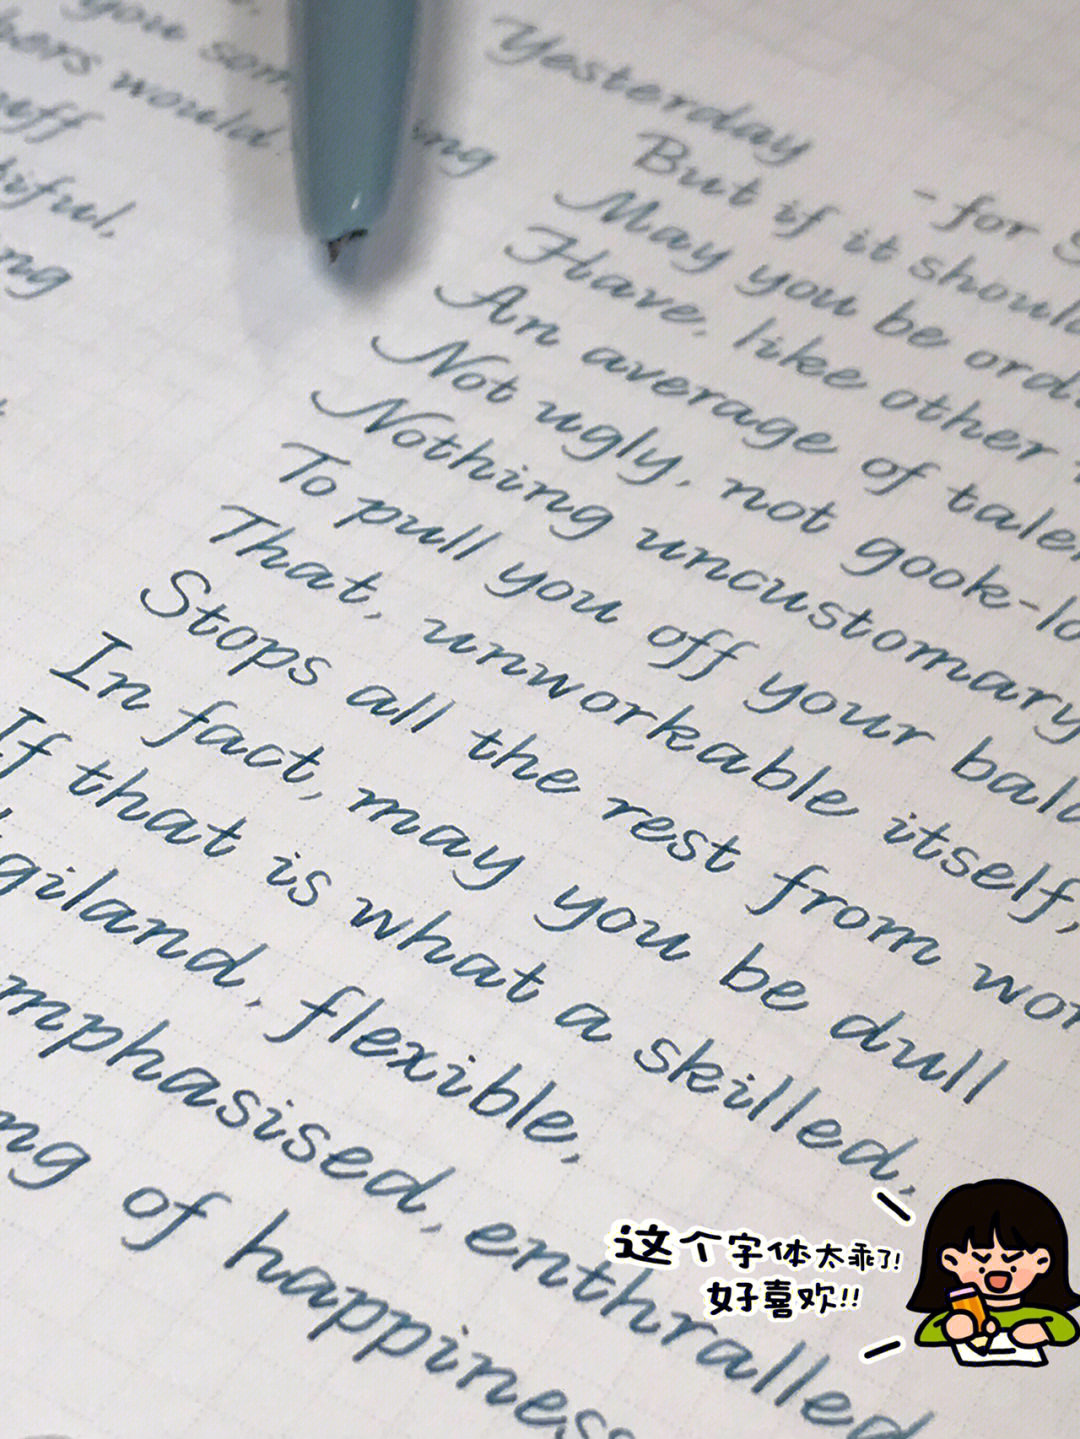 you som
hers would
ing
uff
tiful,
ng
Yesterday
- for S
But if it should
May you be ordi
Have, like other
An average of talen
Not ugly, not gook-lo
Nothing uncustomary
To pull you off your bala
That, unworkable itself,
Stops all the rest from wor
In fact, may you be dull
If that is what a skilled,
giland, flexible,
mphasised, enthralled
ng of happiness
这个字体太乖了!
好喜欢!!